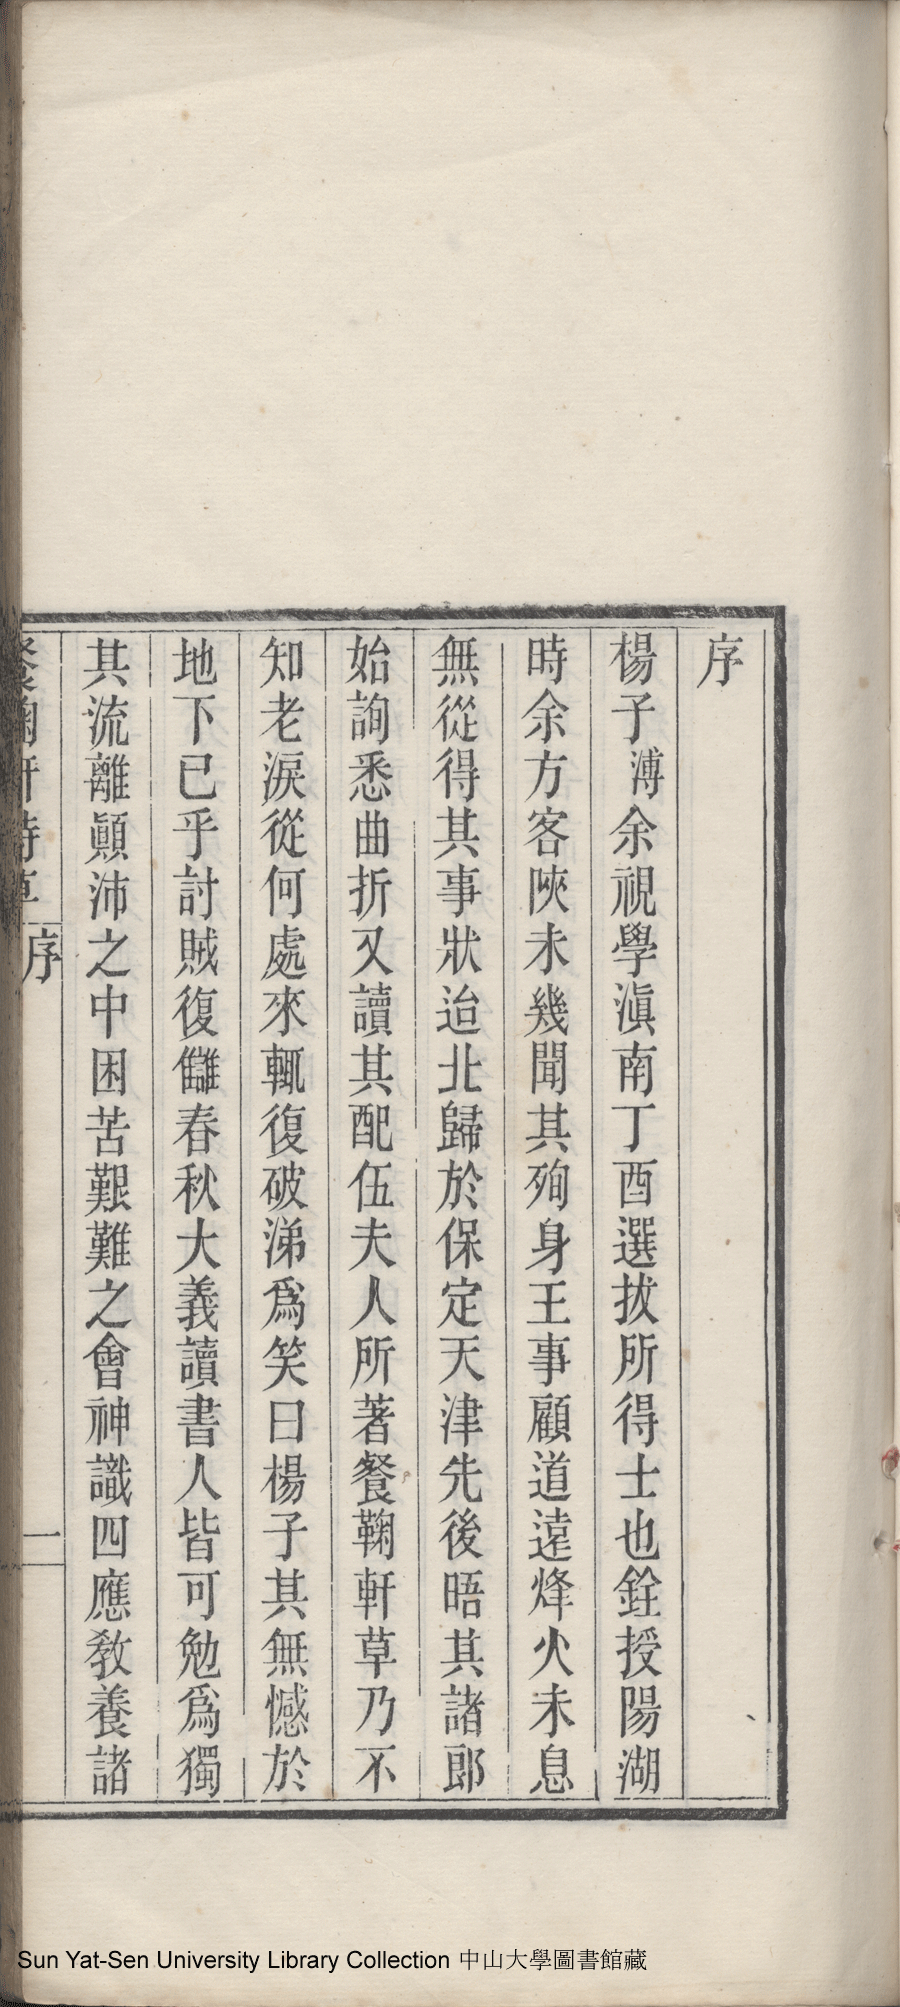 序
楊子溥余視學滇南丁酉選拔所得士也銓授陽湖
時余方客陜未幾聞其殉身王事顧道遠烽火未息
無從得其事狀迨北歸於保定天津先後晤其諸郎
始詢悉曲折又讀其配伍夫人所著餐鞠軒草乃不
知老淚從何處來輒復破涕爲笑曰楊子其無憾於
地下已乎討賊復讎春秋大義讀書人皆可勉爲獨
其流離顚沛之中困苦艱難之會神識四應敎養諸
餐鞠軒詩草 序 一
Sun Yat-Sen University Library Collection 中山大學圖書館藏